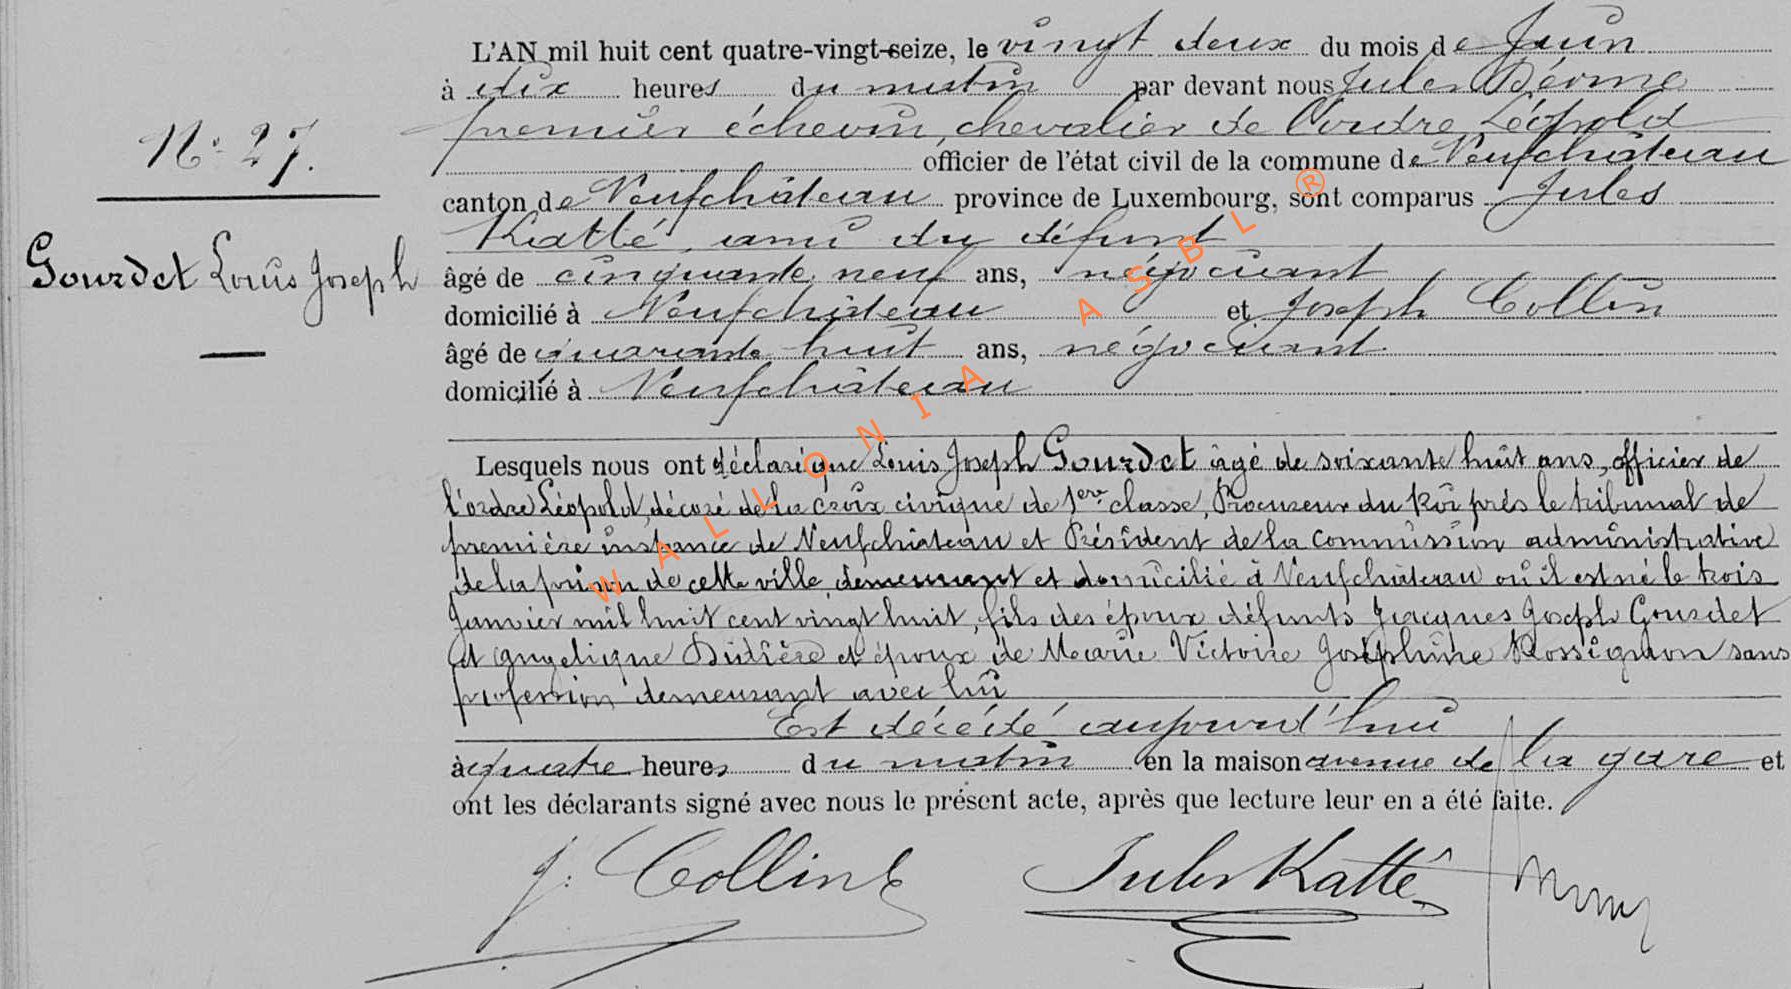 L'AN mil huit cent quatre-vingt-seize, le vingt deux du mois de Juin
à dix heures du matin par devant nous Jules
premier échevin, chevalier de l'ordre Léopold
officier de l'état civil de la commune de Neufchâteau
canton de Neufchâteau province de Luxembourg, sont comparus Jules
Katté, ami du défunt
âgé de cinquante neuf ans, négociant
domicilié à Neufchâteau et Joseph Collin
âgé de quarante huit ans, négociant
domicilié à Neufchâteau
N° 27.
Gourdet Louis Joseph
Lesquels nous ont déclaré que Louis Joseph Gourdet âgé de soixante huit ans, officier de
l'ordre Léopold, décoré de la croix civique de 1ere classe, Procureur du Roi près le tribunal de
première instance de Neufchâteau et Président de la Commission administrative
de la prison de cette ville, demeurant et domicilié à Neufchâteau où il est né le trois
Janvier mil huit cent vingt huit, fils des époux défunts Jacques Joseph Gourdet
et Angelique et époux de Marie Victoire Joséphine Rossignon sans
profession demeurant avec lui
Est décédé aujourd'hui
à quatre heures du matin en la maison avenue de la gare et
ont les déclarants signé avec nous le présent acte, après que lecture leur en a été faite.
J. Collin Jules Katté
WALLONIA ASBL ®